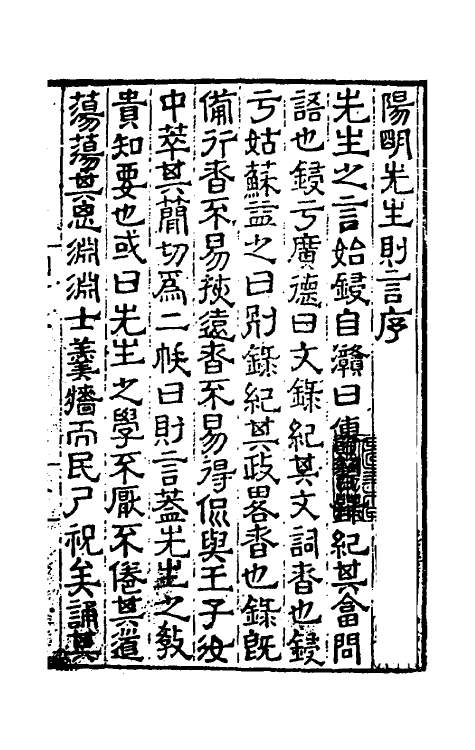 陽明先生則言序
先生之言始鋟自贛曰傳習錄紀其畣問
語也鋟亏廣德曰文錄紀其文詞者也鋟
亏姑蘇益之曰別錄紀其政畧者也錄旣
備行者不易挾遠者不易得侃與王子汝
中萃其簡切爲二帙曰則言蓋先生之敎
貴知要也或曰先生之學不厭不倦其道
蕩蕩其思淵淵士羹牆而民尸祝矣誦其